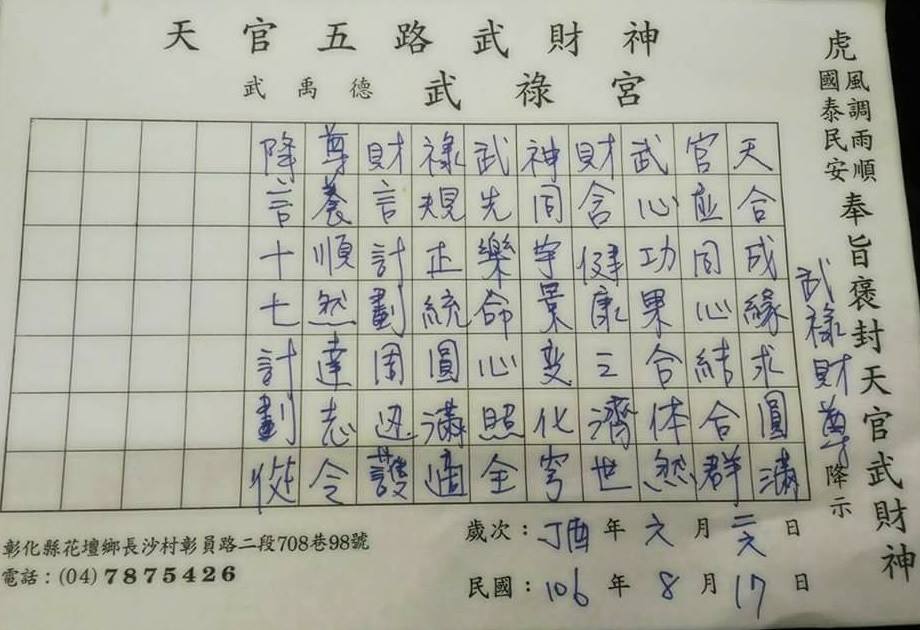 天官五路武財神
武禹德 武祿宮
虎
風調雨順
國泰民安
奉旨褒封天官武財神
武祿財尊降示
天合成緣求圓滿
官並同心結合群
武心功果合体然
財含健康三濟世
神同宇景變化穹
武先樂命心照全
祿規正統圓滿適
財言計劃周邊護
尊養順然達志令
降言十七計劃從
歲次：丁酉年六月二六日
民國：106年8月17日
彰化縣花壇鄉長沙村彰員路二段708巷98號
電話：(04) 7875426